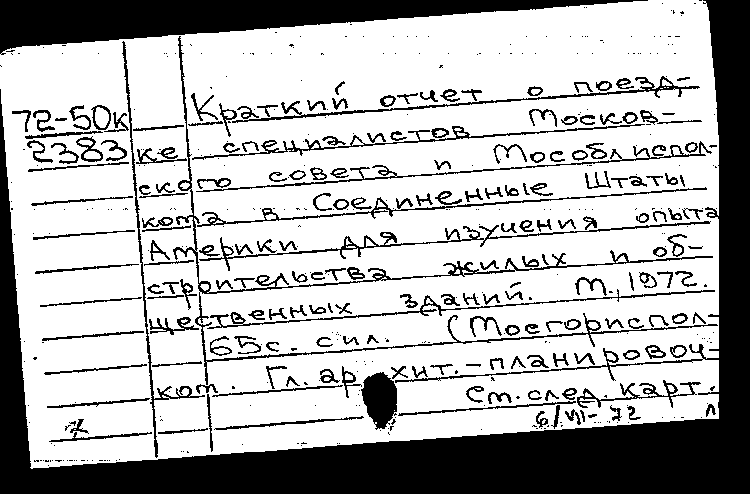 72-50к
2383
Краткий отчет о поезд-
ке специалистов Москов-
ского совета и Мособлиспол-
кома в Соединенные Штаты
Америки для изучения опыта
строительства жилых и об-
щественных зданий. М., 1972.
65с. с ил. (Мосгорисполком-
ком. Гл. архит.-планировоч-
См. след. карт.
6/VII-72 л